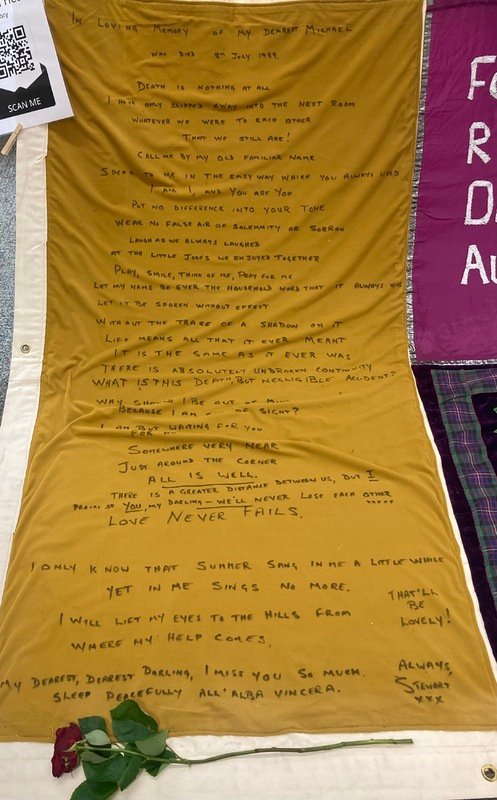 SCAN ME
IN LOVING MEMORY OF MY DEAREST MICHAEL
WHO DIED 8TH JULY 1989.
DEATH IS NOTHING AT ALL
I HAVE ONLY SLIPPED AWAY INTO THE NEXT ROOM
WHATEVER WE WERE TO EACH OTHER
THAT WE STILL ARE!
CALL ME BY MY OLD FAMILIAR NAME
SPEAK TO ME IN THE EASY WAY WHICH YOU ALWAYS USED
I AM I, AND YOU ARE YOU
PUT NO DIFFERENCE INTO YOUR TONE
WEAR NO FALSE AIR OR SOLEMNITY OR SORROW
LAUGH AS WE ALWAYS LAUGHED
AT THE LITTLE JOKES WE ENJOYED TOGETHER
PLAY, SMILE, THINK OF ME, PRAY FOR ME
LET MY NAME BE EVER THE HOUSEHOLD WORD THAT IT ALWAYS WAS
LET IT BE SPOKEN WITHOUT EFFECT
WITHOUT THE TRACE OF A SHADOW ON IT
LIFE MEANS ALL THAT IT EVER MEANT
IT IS THE SAME AS IT EVER WAS
THERE IS ABSOLUTELY UNBROKEN CONTINUITY
WHAT IS THIS DEATH BUT NEGLIGIBLE ACCIDENT?
WHY SHOULD I BE OUT OF
BECAUSE I AM OF SIGHT?
I AM BUT WAITING FOR YOU
FOR
SOMEWHERE VERY NEAR
JUST AROUND THE CORNER
ALL IS WELL.
THERE IS A GREATER DISTANCE BETWEEN US, BUT I
PROMISE YOU, MY DARLING - WE'LL NEVER LOSE EACH OTHER xxxx
LOVE NEVER FAILS.
I ONLY KNOW THAT SUMMER SANG IN ME A LITTLE WHILE
YET IN ME SINGS NO MORE.
I WILL LIFT MY EYES TO THE HILLS FROM
WHERE MY HELP COMES.
THAT'LL
BE
LOVELY!
MY DEAREST, DEAREST DARLING, I MISS YOU SO MUCH.
SLEEP PEACEFULLY ALL'ALBA VINCERA.
ALWAYS,
STEWART
xxx